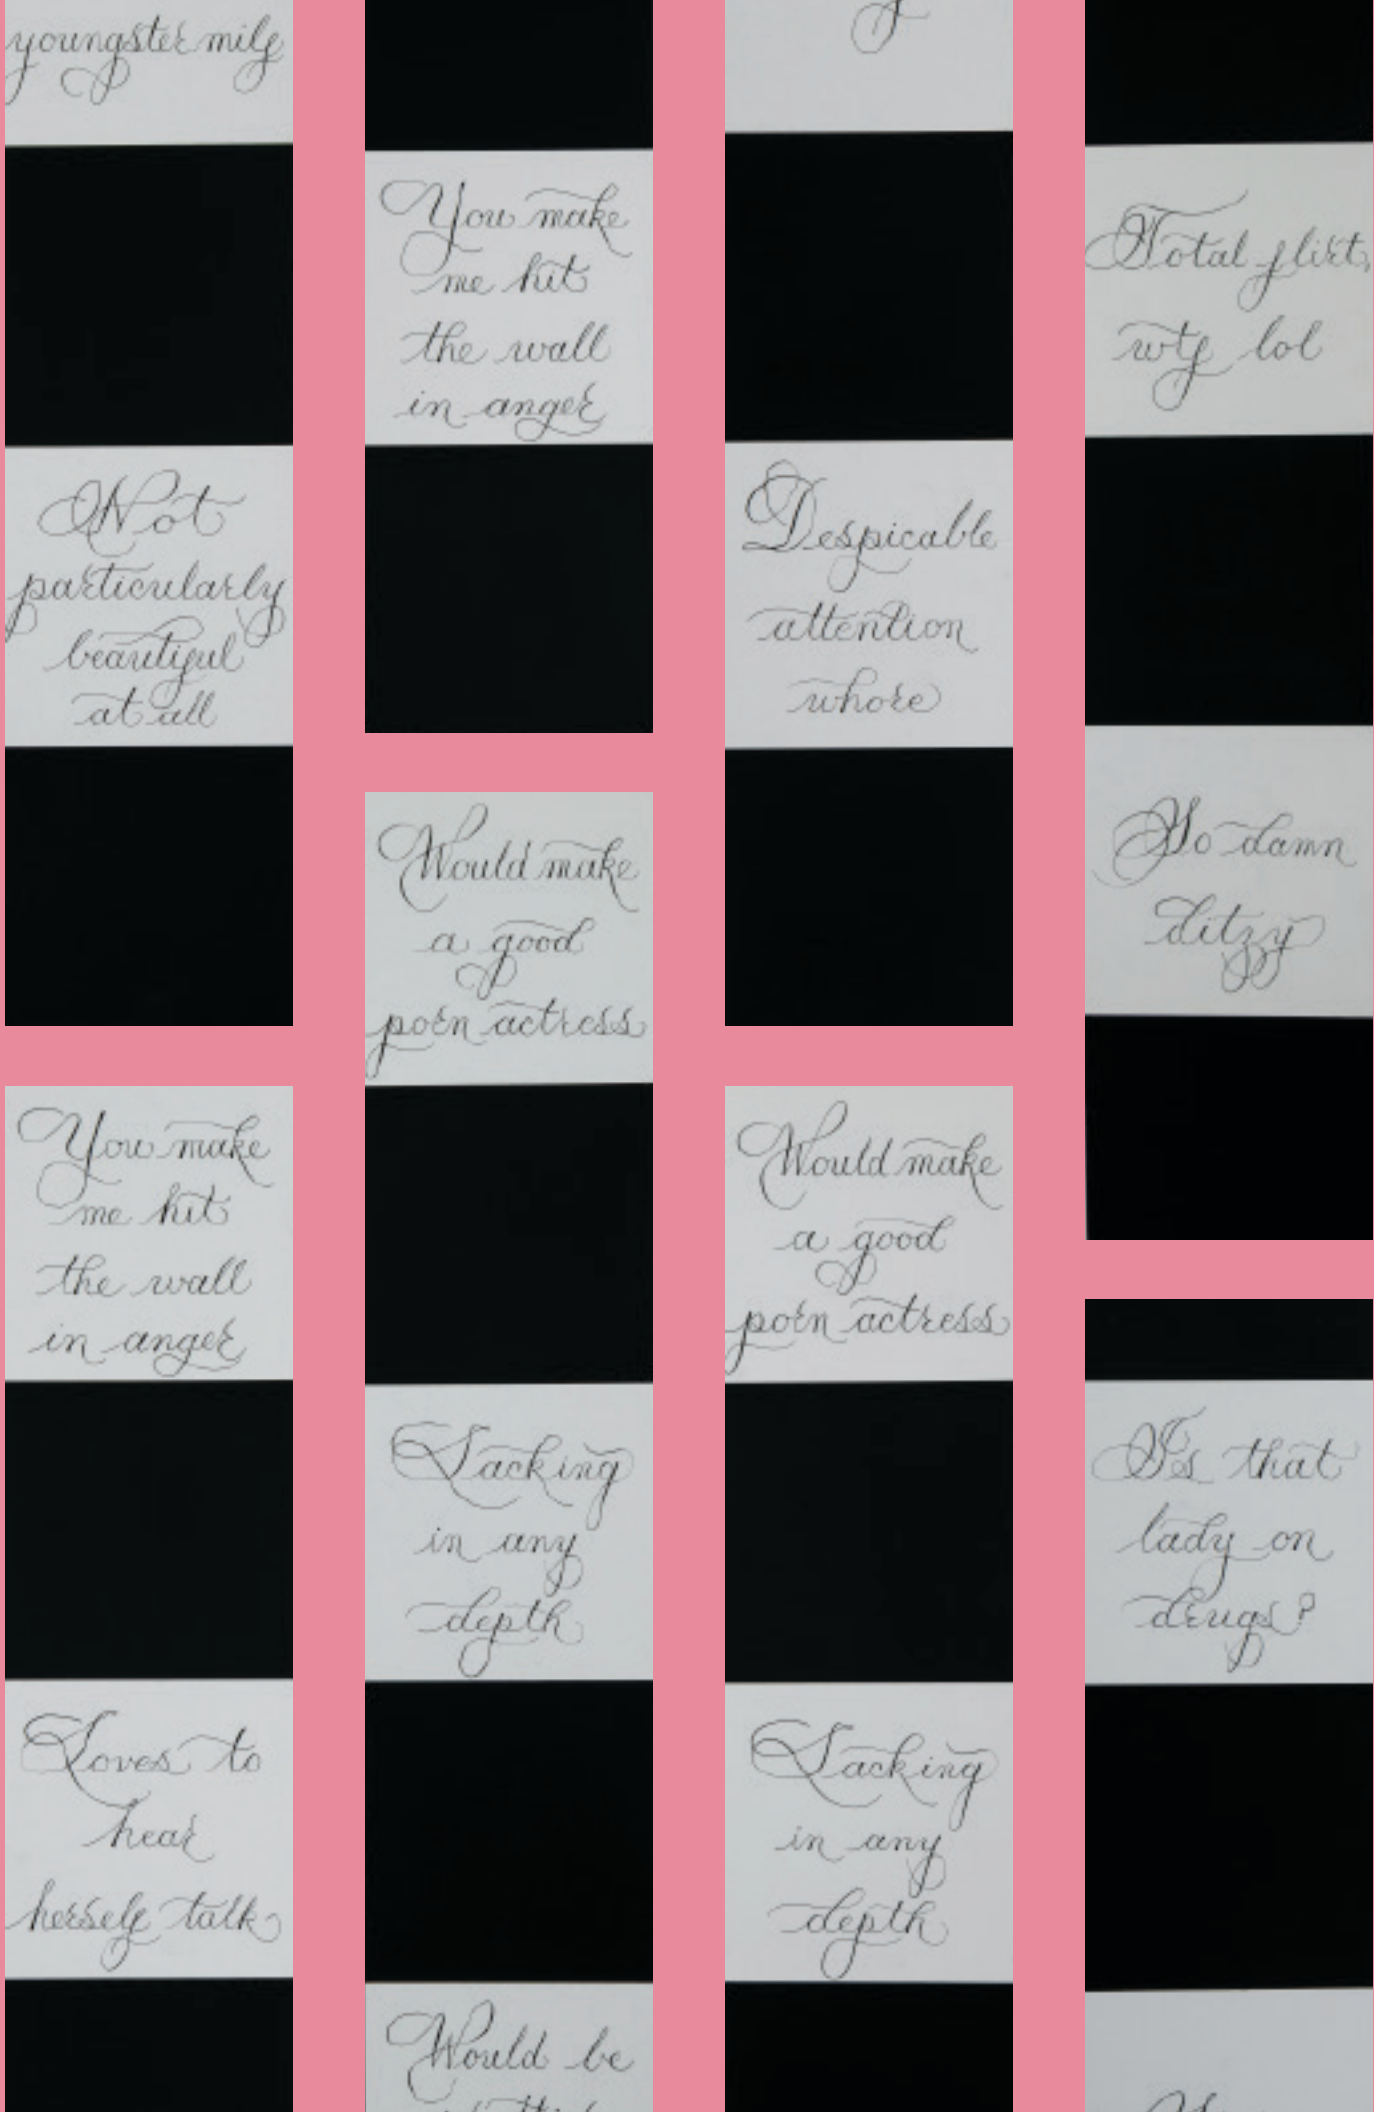 youngster milf
Not
particularly
beautiful
at all
You make
me hit
the wall
in anger
Loves to
hear
herself talk
You make
me hit
the wall
in anger
Would make
a good
porn actress
Lacking
in any
depth
Would be
Despicable
attention
whore
Would make
a good
porn actress
Lacking
in any
depth
Total flirt,
wtf lol
So damn
ditzy
Is that
lady on
drugs?